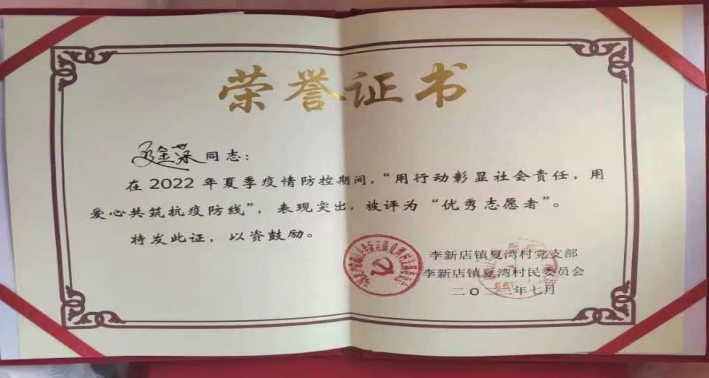 荣誉证书
同志:
在 2022 年夏季疫情防控期间，“用行动彰显社会责任，用
爱心共筑抗疫防线”，表现突出，被评为“优秀志愿者”。
特发此证，以资鼓励。
李新店镇夏湾村党支部
李新店镇夏湾村民委员会
二〇二二年七月